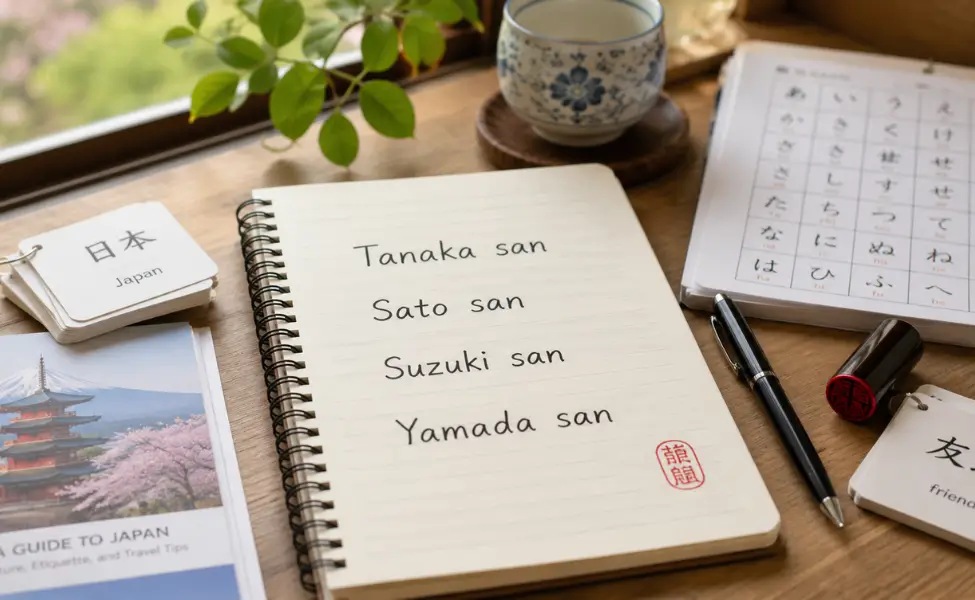 日本
Japan
Tanaka san
Sato san
Suzuki san
Yamada san
A GUIDE TO JAPAN
ture, Etiquette, and Travel Tips
あ い う え
か き く け
さ し す せ
た ち つ て
な に ぬ ね
は ひ ふ へ
友
friend